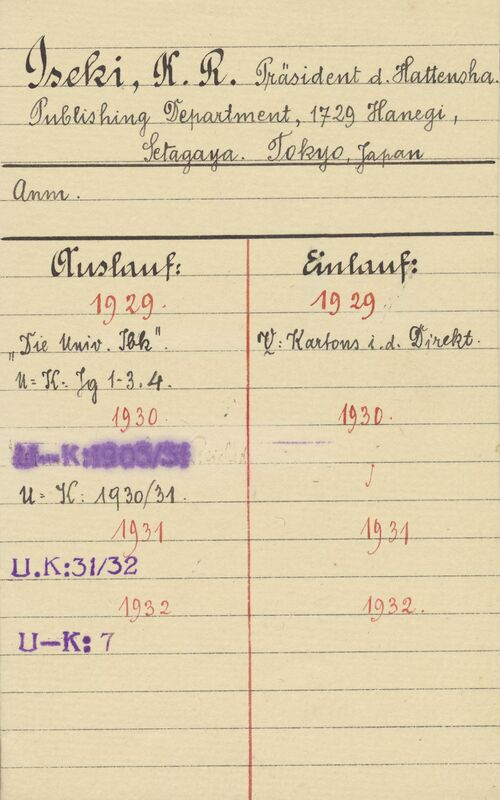 Iseki, K. R. Präsident d. Hattensha.
Publishing Department, 1729 Hanegi,
Setagaya. Tokyo, Japan
Anm.
Auslauf:
1929.
„Die Univ. Ibk".
U=K: Jg 1-3.4.
1930
U—K:1903/31
U=K: 1930/31.
1931
U.K:31/32
1932
U—K: 7
Einlauf:
1929
V: Kartons i. d. Direkt.
1930.
1931
1932.